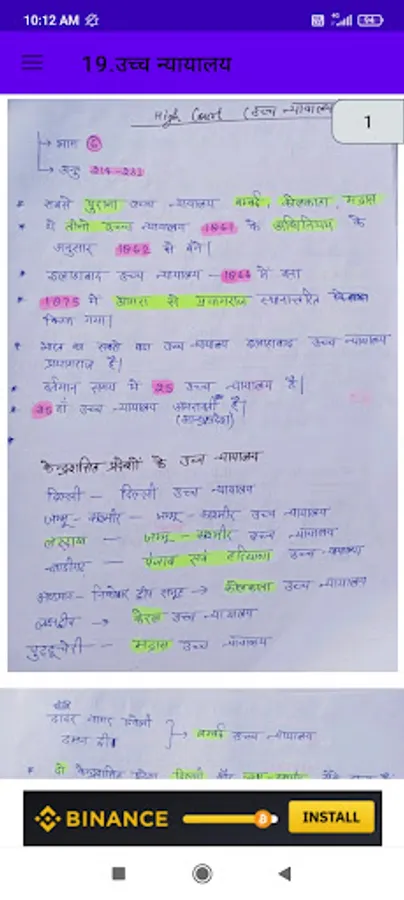 10:12 AM
54
19.उच्च न्यायालय
1
High Court (उच्च न्यायालय
→ भाग 6
→ अनु 214-231
* सबसे पुराना उच्च न्यायालय बम्बई कोलकाता, मद्रास
* ये तीनो उच्च न्यायालय 1861 के अधिनियम के
अनुसार 1862 से बने।
* इलाहाबाद उच्च न्यायालय - 1866 में बना
* 1875 में आगरा से प्रयागराज स्थानांतरित
किया गया।
* भारत का सबसे बड़ा उच्च न्यायालय इलाहाबाद उच्च न्यायालय
प्रयागराज है।
* वर्तमान समय में 25 उच्च न्यायालय है।
* 25 वाँ उच्च न्यायालय अमरावती है।
(आन्ध्रप्रदेश)
केन्द्रशासित प्रदेशों के उच्च न्यायालय
दिल्ली - दिल्ली उच्च न्यायालय
जम्मू-कश्मीर - जम्मू-कश्मीर उच्च न्यायालय
लद्दाख - जम्मू-कश्मीर उच्च न्यायालय
चण्डीगढ़ - पंजाब एवं हरियाणा उच्च न्यायालय
अण्डमान-निकोबार द्वीप समूह → कोलकाता उच्च न्यायालय
लक्षद्वीप → केरल उच्च न्यायालय
पुदुचेरी - मद्रास उच्च न्यायालय
दादर नागर हवेली
दमन दीव → बम्बई उच्च न्यायालय
* दो केन्द्रशासित प्रदेश दिल्ली और जम्मू-कश्मीर
BINANCE
INSTALL